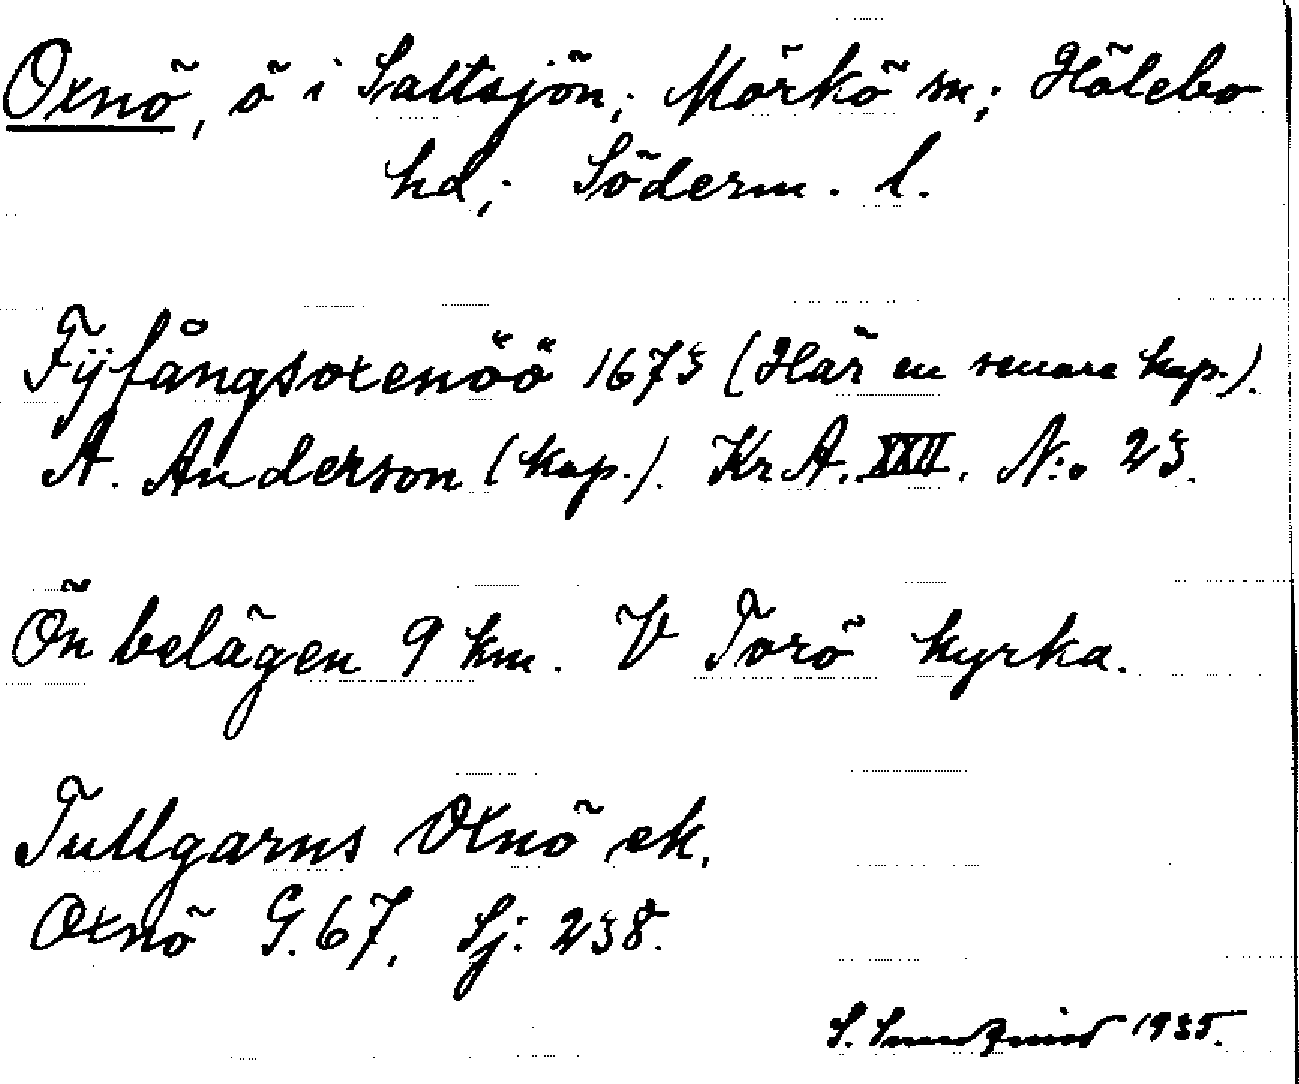 Oxnö, ö i Saltsjön; Mörkö sn; Hölebo
hd; Söderm. l.
Fÿfångsoxenöö 1673 (Här en senare kop.).
A. Anderson (kop.). KrA. XXII. N:o 23.
Ön belägen 9 km. V Torö kyrka.
Tullgarns Oxnö ek.
Oxnö G. 67, Sj: 238.
S. 1935.